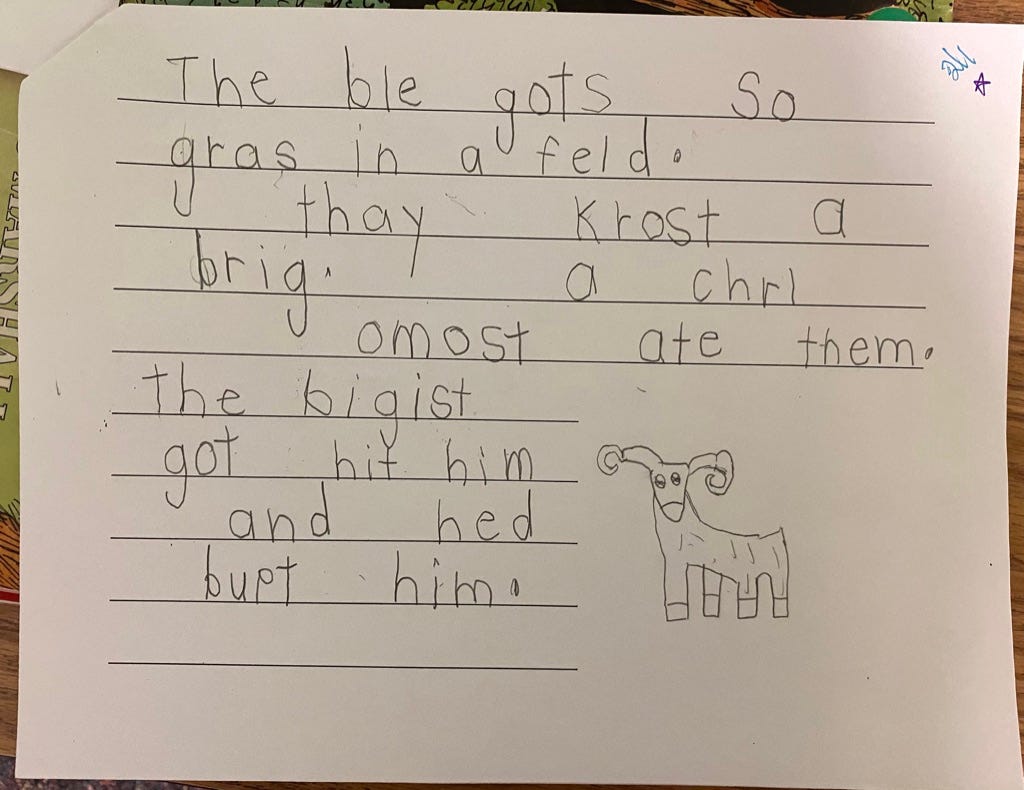 The ble gots so
gras in a feld.
thay Krost a
brig. a chrl
omost ate them.
the bigist
got hit him
and hed
bupt him.